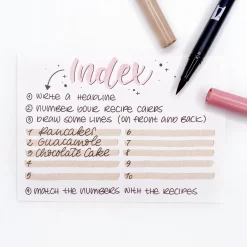 Index
① WRITE A HEADLINE
② NUMBER YOUR RECIPE CARDS
③ DRAW SOME LINES (ON FRONT AND BACK)
1 PANCAKES 6
2 GUACAMOLE 7
3 CHOCOLATE CAKE 8
4 9
5 10
④ MATCH THE NUMBERS WITH THE RECIPES